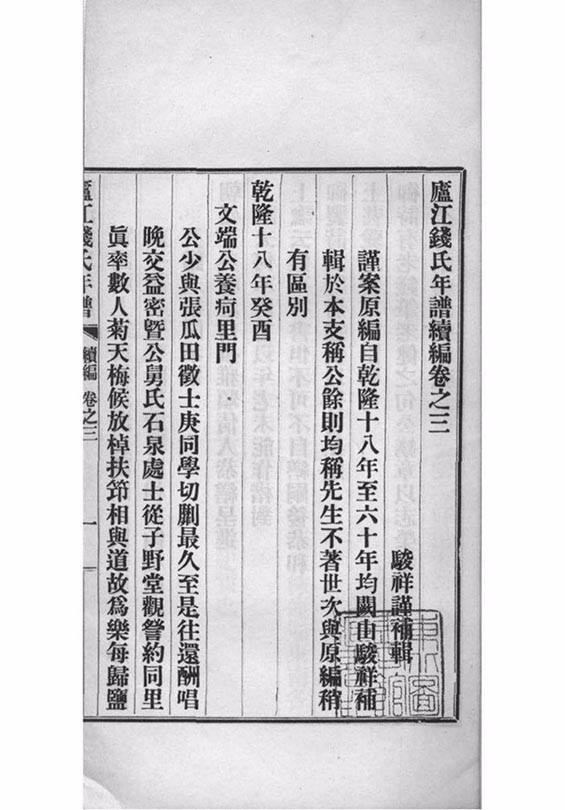 廬江錢氏年譜續編卷之三
駿祥謹補輯
謹案原編自乾隆十八年至六十年均闕由駿祥補
輯於本支稱公餘則均稱先生不著世次與原編稍
有區別
乾隆十八年癸酉
文端公養疴里門
公少與張瓜田徵士庚同學切劘最久至是往還酬唱
晚交益密暨公舅氏石泉處士從子野堂觀詧約同里
眞率數人菊天梅候放棹扶笻相與道故爲樂每歸鹽
廬江錢氏年譜 續編 卷之三 一